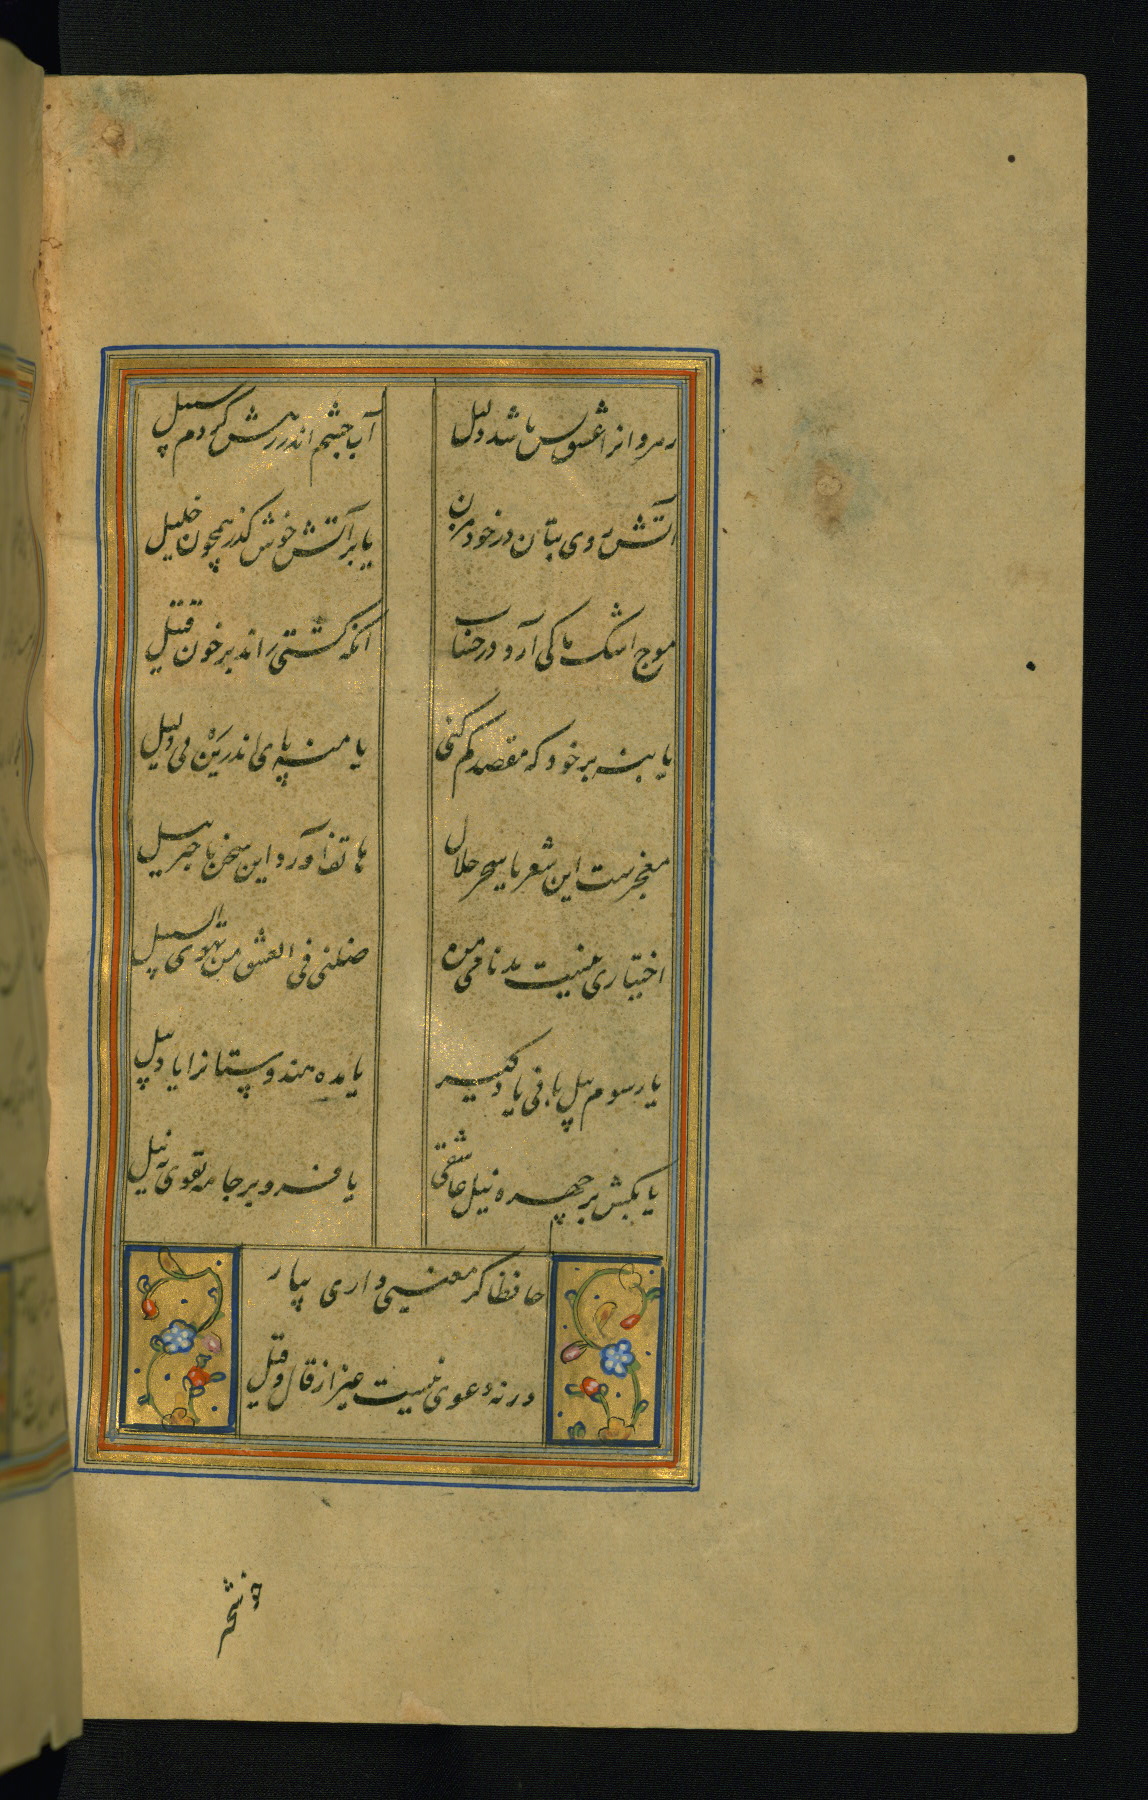 رهروانرا عشق بس باشد دلیل
آب چشم اندر رهش کردم سبیل
آتش روی بتان در خود مزن
یا بر آتش خوش گذر همچون خلیل
موج اشک ما کی آرد در حساب
انکه کشتی راند بر خون قتیل
یا بنه بر خود که مقصد کم کنی
یا منه پای اندرین ره بی دلیل
معجزست این شعر یا سحر حلال
هاتف آورد این سخن یا جبرییل
اختیاری نیست بدنامی من
ضلنی فی العشق من یهدی السبیل
یا رسوم پیل بانی یاد گیر
یا مده هندوستانرا یاد پیل
یا بکش بر چهره نیل عاشقی
یا فرو بر جامه تقوی به نیل
حافظ اگر معنیی داری بیار
ورنه دعوی نیست غیر از قال و قیل